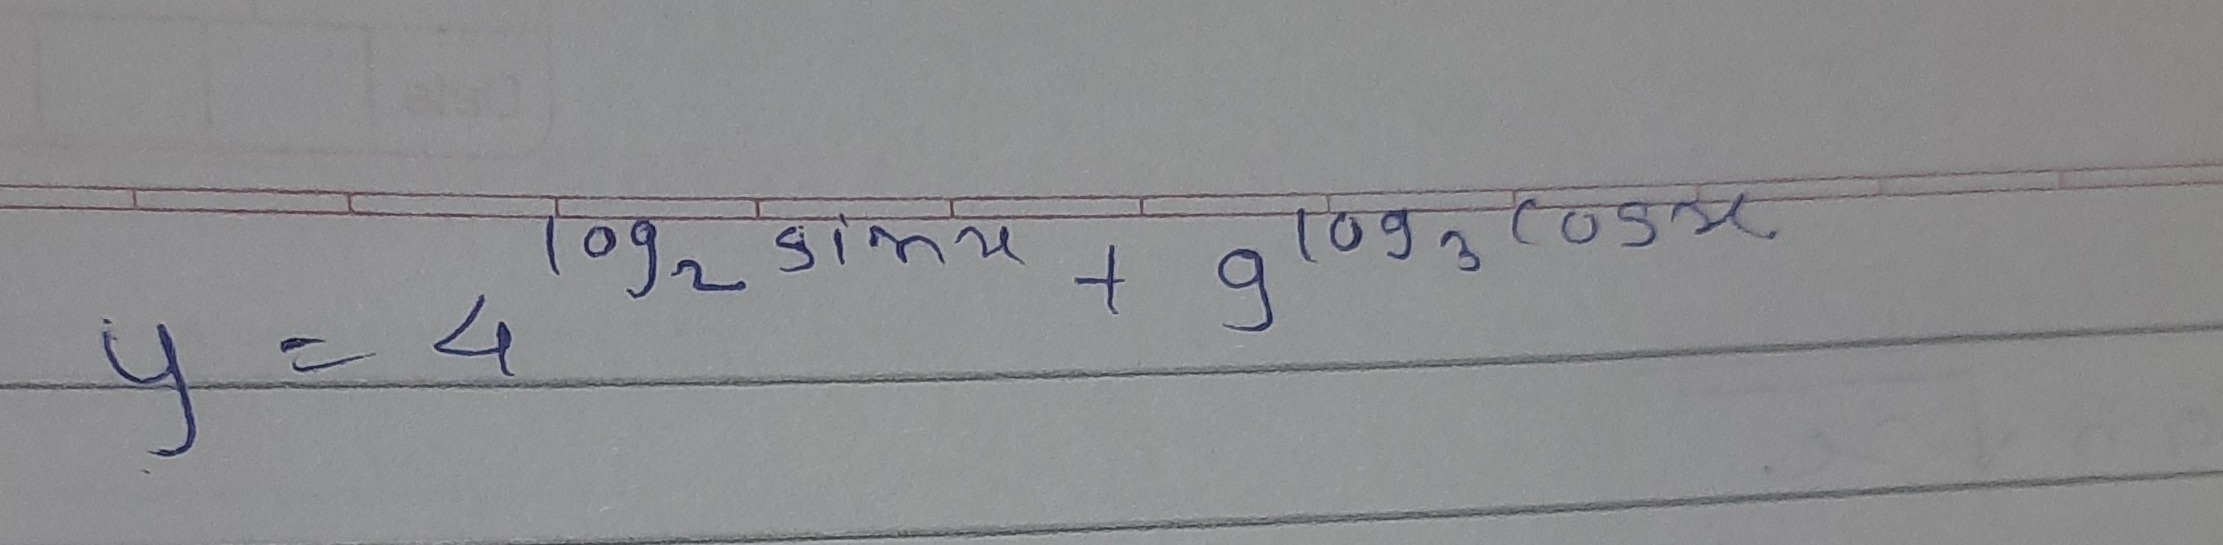 y = 4^{log_2 sin x} + 9^{log_3 cos x}